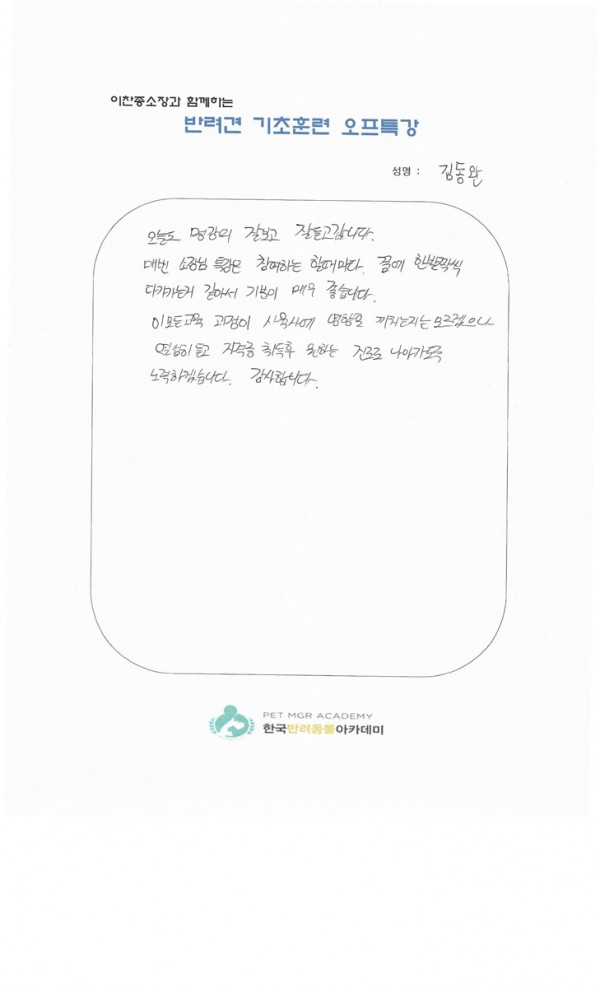 이찬종소장과 함께하는
반려견 기초훈련 오프특강
성명 : 김동완
오늘도 명강의 잘보고 잘듣고갑니다.
매번 소장님 특강은 참여하는 할때마다. 꿈에 한발짝씩
다가가는거 같아서 기분이 매우 좋습니다.
이모든교육 과정이 사육사에 영향을 끼치는지는 모르겠으나
열심히 듣고 자격증 취득후 원하는 진로로 나아가도록
노력하겠습니다. 감사합니다.
PET MGR ACADEMY
한국반려동물아카데미